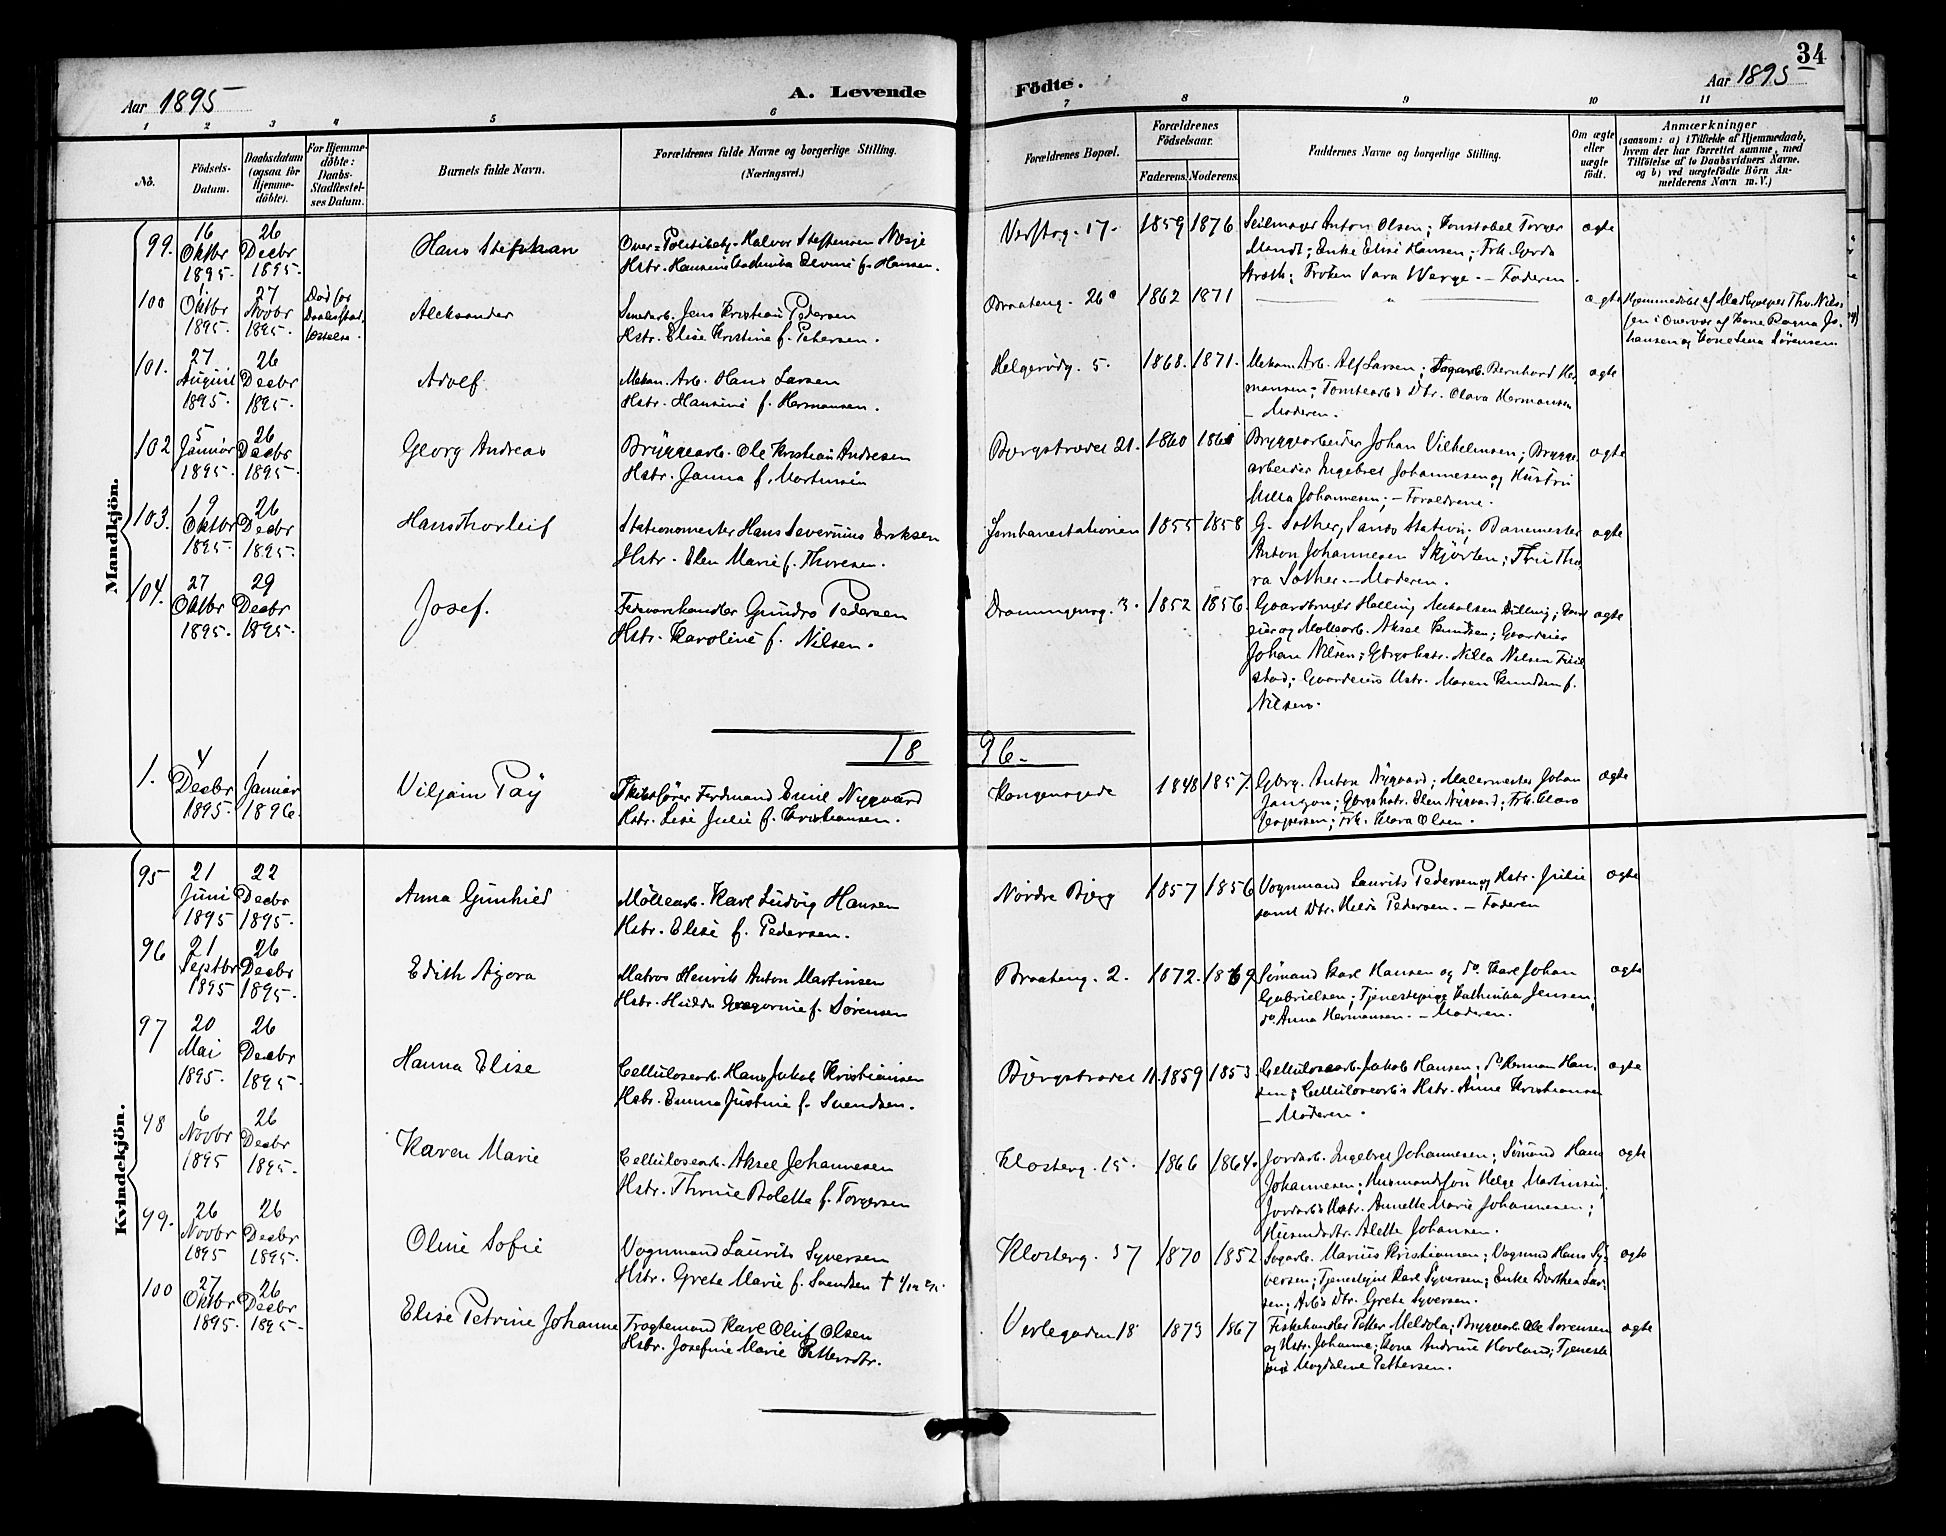 34
Aar 1895
A. Levende
Födte.
Aar 1895
1 2 3 4 5 6 7 8 9 10 11
No.
Födsels-Datum.
Daabsdatum (ogsaa for Hjemme-döbte).
For Hjemme-döbte: Daabs-Stadfæstel-ses Datum.
Barnets fulde Navn.
Forældrenes fulde Navne og borgerlige Stilling.
(Næringsvei.)
Forældrenes Bopæl.
Forældrenes Födselsaar.
Faderens. Moderens.
Faddernes Navne og borgerlige Stilling.
Om ægte eller uægte födt.
Anmærkninger
(saasom: a) i Tilfælde af Hjemmedaab, hvem der har forrettet samme, med Tilföielse af to Daabsvidners Navne. og b) ved uægtefödte Börn An-melderens Navn m. V.)
Mandkjön.
99. 16 Oktbr 1895. 26 Decbr 1895. Hans Steffman
Over-Politibetj. Halvor Steffensen Næsje
Hstr. Hansine Cathinka Elvine f. Hansen.
Verftsg. 17. 1859 1876
Seilmager Anton Olsen; Konstabel Torvær
Mandt; Enke Elise Hansen; Frk. Gyrda
Stroth; Frøken Sara Werge. – Faderen.
ægte
100 1. Oktbr 1895. 27 Novbr 1895. Død før Daabsstadfæstelse. Aleksander
Smedarb. Jens Kristian Pedersen
Hstr. Elise Kristine f. Petersen.
Braateng. 26a 1862 1871
"
ægte
Hjemmedøbt af Madhjelper Thv. Nils-
sen i Overvær af Kone Ragna Jo-
hansen og Kone Lena Sørensen
101. 27 August 1895. 26 Decbr 1895. Adolf.
Mekan. Arb. Hans Larsen
Hstr. Hansine f. Hermansen.
Helgerødg. 5. 1868. 1871.
Mekan Arb. Alf Larsen; Sagarb. Bernhard Her-
mansen; Tomtearb's Dtr. Olava Hermansen
– Moderen.
ægte
102 5 Januar 1895. 26 Decbr 1895. Georg Andreas
Bryggearb. Ole Kristian Andresen
Hstr. Janna f. Martinsen
Bjergstrædet 21. 1860 1861
Bryggearbeider Johan Vilhelmsen; Brygge-
arbeider Ingebret Johannesen og Hustru
Milla Johannesen; – Forældrene.
ægte
103. 19 Oktbr 1895. 26 Decbr 1895. Hans Thorleif
Stationsmester Hans Severinius Eriksen
Hstr. Elen Marie f. Thoresen.
Jernbanestationen 1855 1858
G. Sother, Sandes Station; Banemester
Anton Johannesen Skjørten; Fru Tho-
ra Sother. – Moderen.
ægte
104. 27 Oktbr 1895. 29 Decbr 1895. Josef.
Fedevarehandler Gundro Pedersen
Hstr. Karoline f. Nilsen.
Dronningensg. 3. 1852 1856.
Gaardbruger Helling Mikalsen Dilling; Gaard-
eier og Møllearb. Aksel Knudsen; Gaardeier
Johan Nilsen; Gbrgshstr. Nilla Nilsen
stad; Gaardeiers Hstr. Maren Knudsen f.
Nilsen.
ægte
18 96.
1. 4 Decbr 1895. 1 Januar 1896. Viljam Pay
Skibsfører Ferdinand Emil Nygaard
Hstr. Lise Julie f. Kristiansen.
Kongensgade 1848 1857.
Gbrg. Anton Nygaard; Malermester Johan
Janzon; Gbrgshstr. Elen Nygaard; Frk. Clara
Jespersen; Frk. Klara Olsen.
ægte
Kvindekjön.
95 21 Juni 1895 22 Decbr 1895. Anna Gunhild
Möllearb. Karl Ludvig Hansen
Hstr. Elise f. Pedersen.
Nordre Bjerg 1857 1856
Vognmand Laurits Pedersen og Hstr. Julie
samt Dtr. Hilda Pedersen. – Faderen
ægte
96 21 Septbr 1895 26 Decbr 1895. Edith Agora
Matros Henrik Anton Martinsen
Hstr. Hulda Gregorine f. Sørensen
Braateng. 2. 1872. 1869.
Sømand Karl Hansen og do Karl Johan
Gabrielsen; Tjenestepige Kathinka Jensen,
do Anna Hermansen. – Moderen.
ægte
97 20 Mai 1895. 26 Decbr 1895. Hanna Elise
Cellulosearb. Hans Jakob Kristiansen
Hstr. Emma Justine f. Svendsen.
Bjergstrædet 11. 1859 1853.
Cellulosearb. Jakob Hansen; do Herman Han-
sen; Cellulosearb's Hstr. Anne Kristiansen
– Moderen.
ægte
98 6 Novbr 1895 26 Decbr 1895. Karen Marie
Cellulosearb. Aksel Johannesen
Hstr. Thrine Bolette f. Torgersen
Klosterg. 15. 1866 1864.
Jordarb. Ingebret Johannesen; Sømand Hans
Johannesen; Husmandssøn Helge Martinsen;
Jordarb's Hstr. Annette Marie Johannesen;
Husmdsdtr. Alette Johansen.
ægte
99. 26 Novbr 1895 26 Decbr 1895. Oline Sofie
Vognmand Laurits Syversen
Hstr. Grete Marie f. Svendsen †
Klosterg. 37 1870 1852
Sagarb. Marius Kristiansen; Vognmd Hans Sy-
versen; Tjenestepige Karl Syversen; Enke Dorthea Lar-
sen; Arb's Dtr. Grete Syversen.
ægte
100 27 Oktbr 1895. 26 Decbr 1895. Elise Petrine Johanne
Fragtemand Karl Oluf Olsen
Hstr. Josefine Marie Pettersdtr.
Verlegaden 18 1873 1867
Fiskehandler Petter Meldola; Bryggearb. Ole Sørensen
og Hstr. Johanne; Kone Andrine Hovland; Tjeneste-
pige Magdalene Pettersen.
ægte